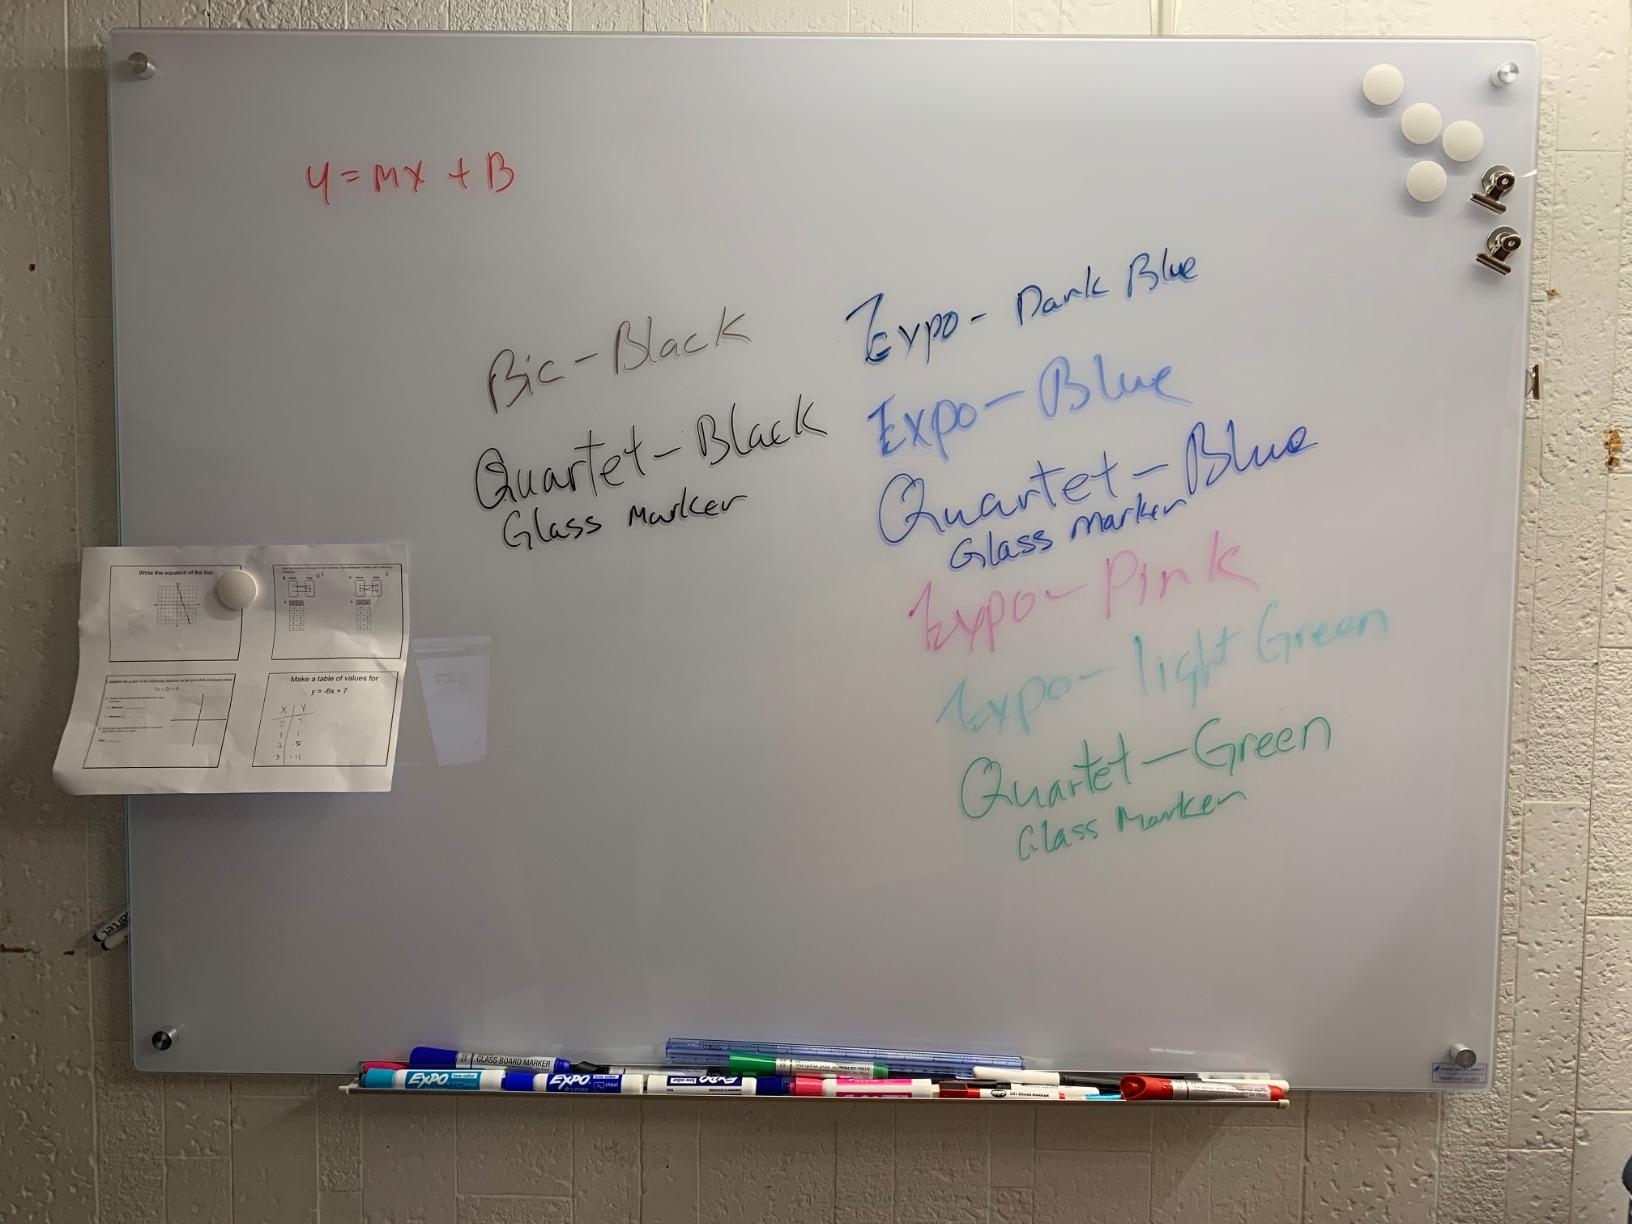 y = mx + B
Bic - Black
Quartet - Black
Glass Marker
Expo - Dark Blue
Expo - Blue
Quartet - Blue
Glass Marker
Expo - Pink
Expo - light Green
Quartet - Green
Glass Marker
Write the equation of the line.
Make a table of values for
y = -6x + 7
X Y
0 7
1 1
2 -5
3 -11
GLASS BOARD MARKER
EXPO
EXPO
EXPO